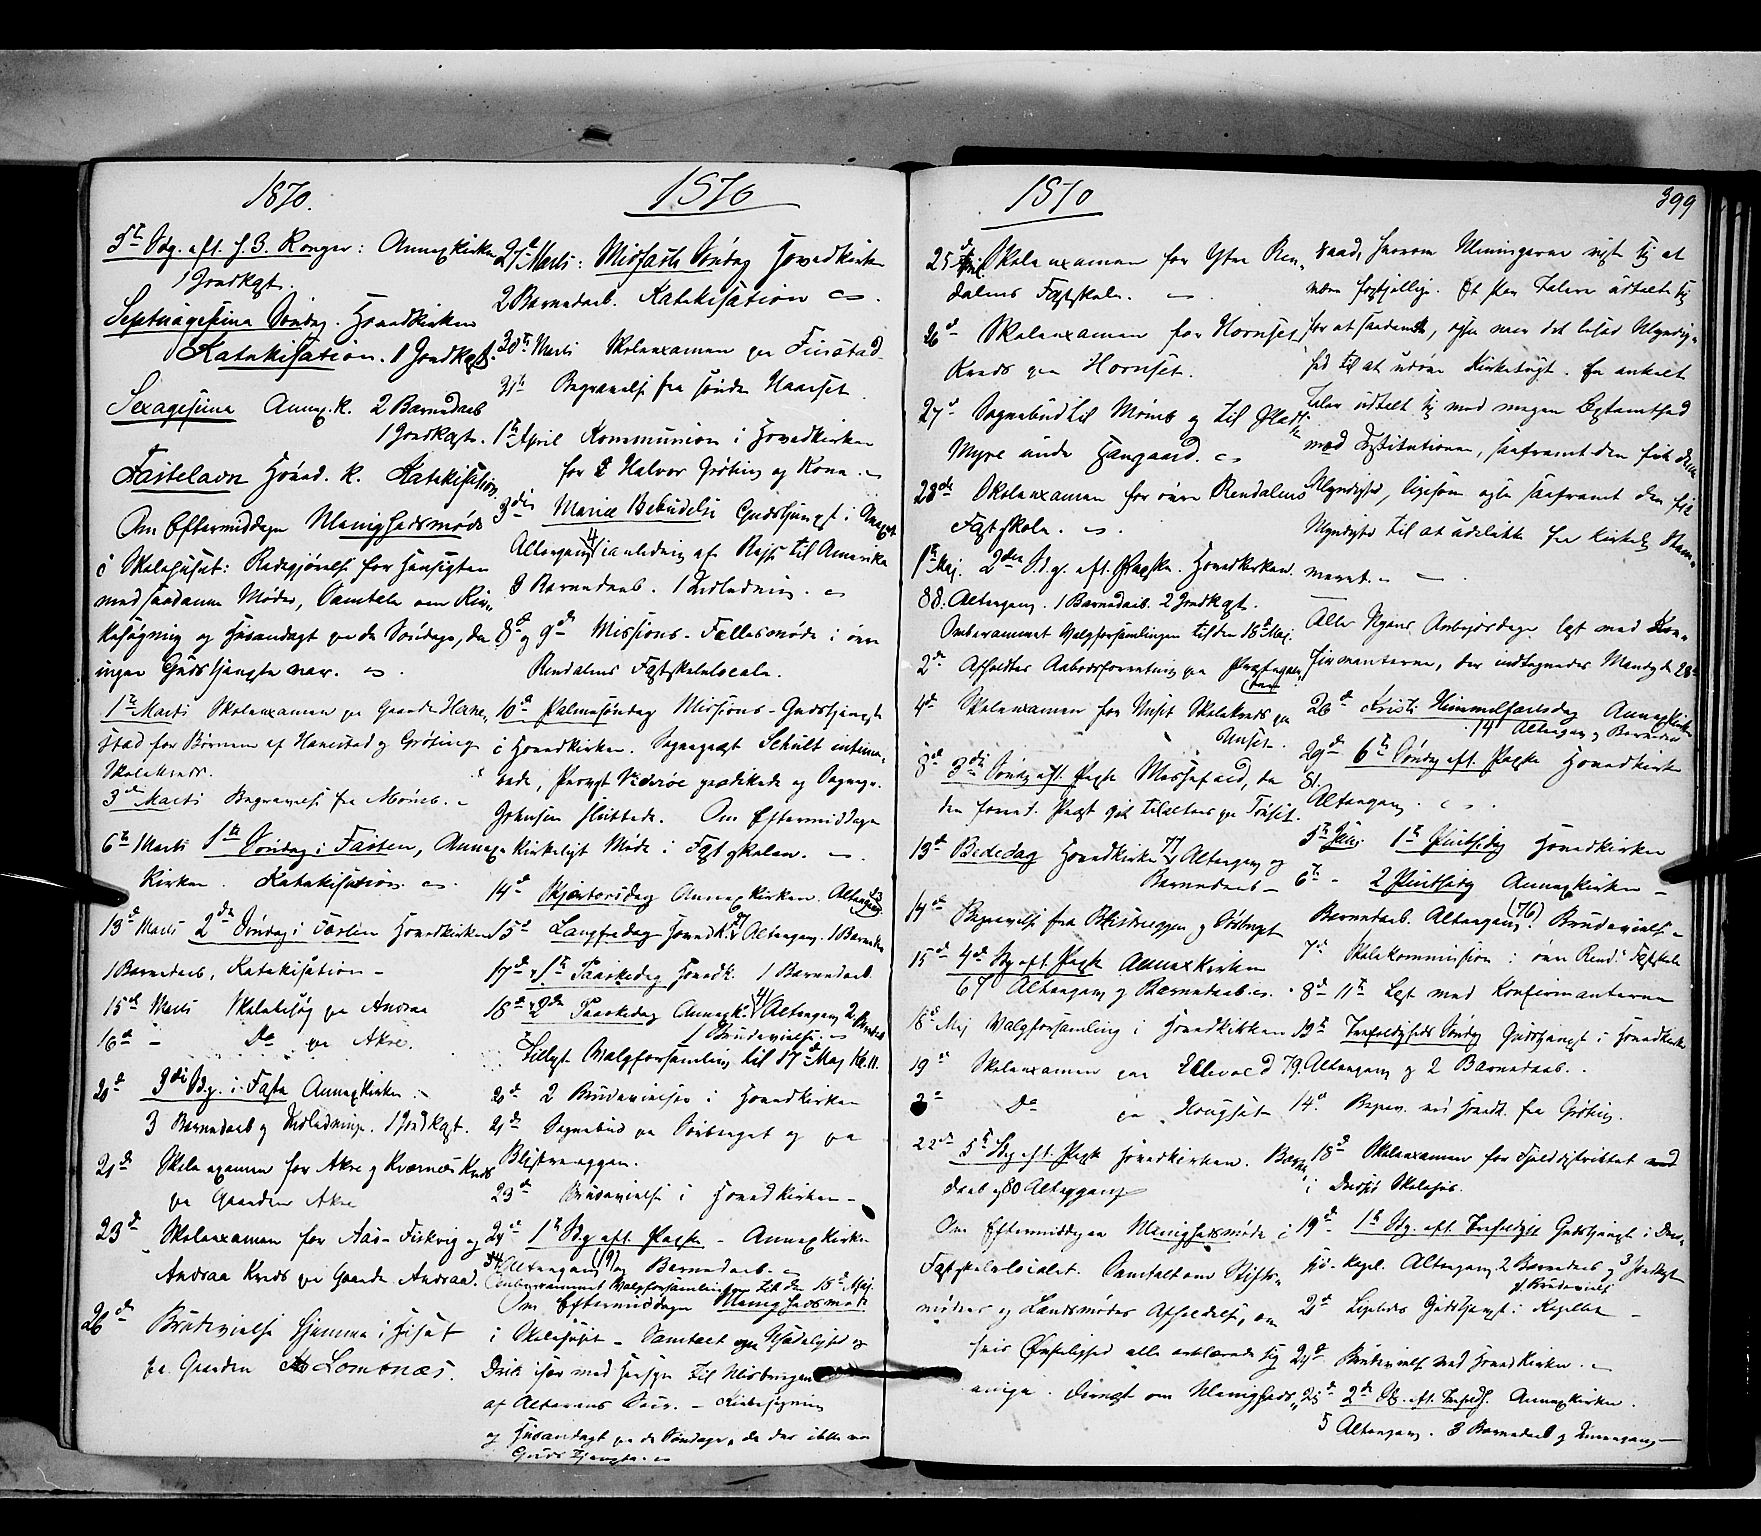 1870.
5te Sdg. eft. H. 3. Konger: Annexkirken
1 Jordkast.
Septuagesima Søndag. Hovedkirken
Katekisation. 1 Jordkast.
Sexagesima Annex.k. 2 Barnedaab
1 Jordkast.
Fastelavn Hoved.k. Katekisation.
Om Eftermiddagen Menighedsmøde
i Skolehuset: Redegjørelse for Hensigten
med saadanne Møder, Samtale om Kir-
kesøgning og Husandagt paa de Søndage, da
ingen Gudstjeneste var.
1te Marts Skoleexamen paa Gaarden Hane-
stad for Børnene af Hanestad og Grøtting
Skolekreds.
3de Marts Begravelse fra Møneb.
6te Marts 1te Søndag i Fasten, Annex-
Kirken. Katekisation.
13de Marts 2den Søndag i Fasten Hovedkirken
1 Barnedaab, Katekisation
15de Marts Skolebesøg paa Andraa
16de - Do paa Akre.
20de 3die Sdg. i Faste Annexkirken
3 Barnedaab og Indledninge. 1 Jordkast.
21de Skoleexamen for Akre og Kværnæs Kreds
paa Gaarden Akre
23de Skoleexamen for Aas-Fiskvig og
Andraa Kreds paa Gaarden Andraa.
26de Brudevielse hjemme i Huset
paa Gaarden Lomnæs.
1870
27de Marts: Midfaste Søndag Hovedkirken
2 Barnedaab. Katekisation
30te Marts Skoleexamen paa Finstad
31te Begravelse fra søndre Haarset.
1te April Kommunion i Hovedkirken
for Halvor Grøtting og Kone.
3die Mariæ Bebudelse Gudstjeneste i Annexet
Altergang 4 i anledning af Rejse til Amerika
3 Barnedaab. 1 Indledning.
8de og 9de Missions-Fællesmøde i øvre
Rendalens Fastskolelocale.
10de Palmesøndag Missions-Gudstjeneste
i Hovedkirken. Sognepræst Schult intime-
rede, Provst Videröe prædikede og Sognepr.
Johnsen sluttede. Om Eftermiddagen
kirkeligt Møde i Fastskolen.
14de Skjærtorsdag Annexkirken. Altergang
15de Langfredag Hovedk. Altergang. 1 Barnedaab
17de 1te Paaskedag Hovedk. 1 Barnedaab
18de 2den Paaskedag Annexk. Altergang 2 Barnedaab
1 Brudevielse
Tillyst Valgforsamling til 17de Maj Kl. 11.
20de 2 Brudevielser i Hovedkirken
21de Sognebud paa Sørberget og paa
Blistreeggen.
23de Brudevielse i Hovedkirken
24de 1te Sdg eft. Paaske - Annexkirken
Altergang (19) og Barnedaab.
Omberammet Valgforsamlingen til den 18de Maj.
Om Eftermiddagen Menighedsmøde
i Skolehuset - Samtalt om Usædelighed og
Drik især med Hensyn til Misbrugen
af Alterens Sacr. - Kirkesøgning
og Husandagt paa de Søndage, da der ikke var
Gudstjeneste.
1870
399
25de April Skoleexamen for Ytre Ren-
dalens Fastskole.
26de Skoleexamen for Hornset
Kreds paa Hornset.
27de Sognebud til Møneb og til Pladsen
Myre under Haugaard.
28de Skoleexamen for øvre Rendalens
Fastskole.
1te Maj. 2den Sdg. eft. Paaske. Hovedkirken.
88. Altergang. 1 Barnedaab. 2 Jordkast.
Omberammet Valgforsamlingen til den 18de Maj.
2de Afholdtes Aabodsforretning paa Præstegaar-
den
4de Skoleexamen for Unset Skolekreds paa
Unset.
8de 3die Søndag eft. Paaske Messefald, da
13de Bededag Hovedkirken 77 Altergang og
Barnedaab
14de Begravelse fra Blistreeggen og Sørberget
15de 4de Sdg eft. Paaske Annexkirken
67 Altergang og Barnedaab.
18de Maj Valgforsamling i Hovedkirken
19de Skoleexamen paa Ellevold
Do paa Hougset
22de 5te Sdg eft. Paaske Hovedkirken. Barne-
daab og 80 Altergang
Om Eftermiddagen Menighedsmøde i
Fastskolelocalet. Samtalt om Stifts-
møder og Landsmøders Afholdelse, om
hvis Ønskelighed alle erklærede sig
enige. Dernæst om Menigheds-
raad, hvorom Meningerne viste sig at
være forskjellige. Et Par Talere udtalte sig
for at saadanne, ogsaa med det lised Myndig-
hed til at udøve Kirketugt. En enkelt
Taler udtalte sig med megen Bestemthed
mod Institutionen, saafremt den fik denne
Myndighed, ligesom ogsaa saafremt den fik
Myndighed til at udelukke fra Kirkelig Sam-
været.
Alle Ugens Arbejdsdage læst med Kon-
firmanterne, der indtegnedes Mandag de 23de
26de Kristi Himmelfartsdag Annexkirken
14 Altergang og Barnedaab
29de 6te Søndag eft. Paaske Hovedkirken
81 Altergang.
5te Juni 1te Pintsedag Hovedkirken
6te - 2 Pintsedag Annexkirken -
Barnedaab. Altergang (76). Brudevielse
7de Skolekommission i øvre Rend. Fastskole
8de - 11te Læst med Konfirmanterne
13te Trefoldigheds Søndag Gudstjeneste i Hovedkirken
79. Altergang og 2 Barnedaab.
14de Begrav. ved Hovedk. fra Grøtting.
18de Skoleexamen for Fjelddistriktet
i Drevsjø Skolehus.
19de 1te Sdg. eft. Trefoldighed Gudstjeneste i Drev-
sjø-Kapel. Altergang 2 Barnedaab og 3 Jordkast
1 Brudevielse
21de Ligeledes Gudstjeneste i Kapellet
24de Brudevielse ved Hovedkirken.
25de 2den Sdg. eft. Trefoldh. Annexkirken.
5 Altergang. 3 Barnedaab og Introgang